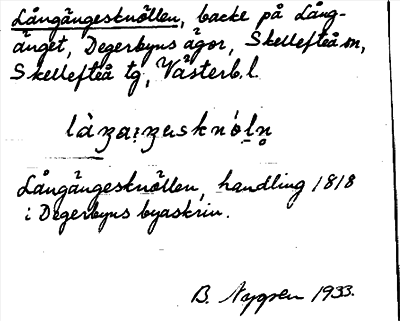 Långängesknöllen, backe på Lång-
änget, Degerbyns ägor, Skellefteå sn,
Skellefteå tg, Västerb. l.
Långängesknöllen, handling 1818
i Degerbyns byaskrin.
B. Nygren 1933.